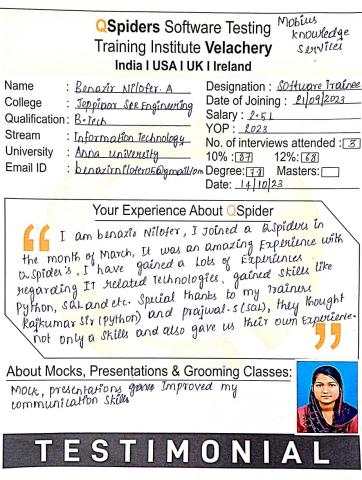 QSpiders Software Testing
Training Institute Velachery
India I USA I UK I Ireland
Mobius
Knowledge
Services
Name : Benazir Nilofer. A
College : Jeppiaar SRR Engineering
Qualification : B.Tech
Stream : Information Technology
University : Anna University
Email ID : benazirnilofer05@gmail.com
Designation : Software Trainee
Date of Joining : 21/09/2023
Salary : 2.5L
YOP : 2023
No. of interviews attended :
10% : 87 12%: 68
Degree: Masters:
Date: 14/10/23
Your Experience About QSpider
I am benazir Nilofer, I Joined a QSpiders in
the month of March, It was an amazing Experience with
QSpider's, I have gained a Lots of Experiences
regarding IT related Technologies, gained Skills like
Python, SQL and etc. Special thanks to my Trainers
Rajkumar Sir (Python) and prajwal.S (SQL), they thought
not only a Skills and also gave us their own Experience.
About Mocks, Presentations & Grooming Classes:
Mock, presentations Improved my
communication Skills
TESTIMONIAL